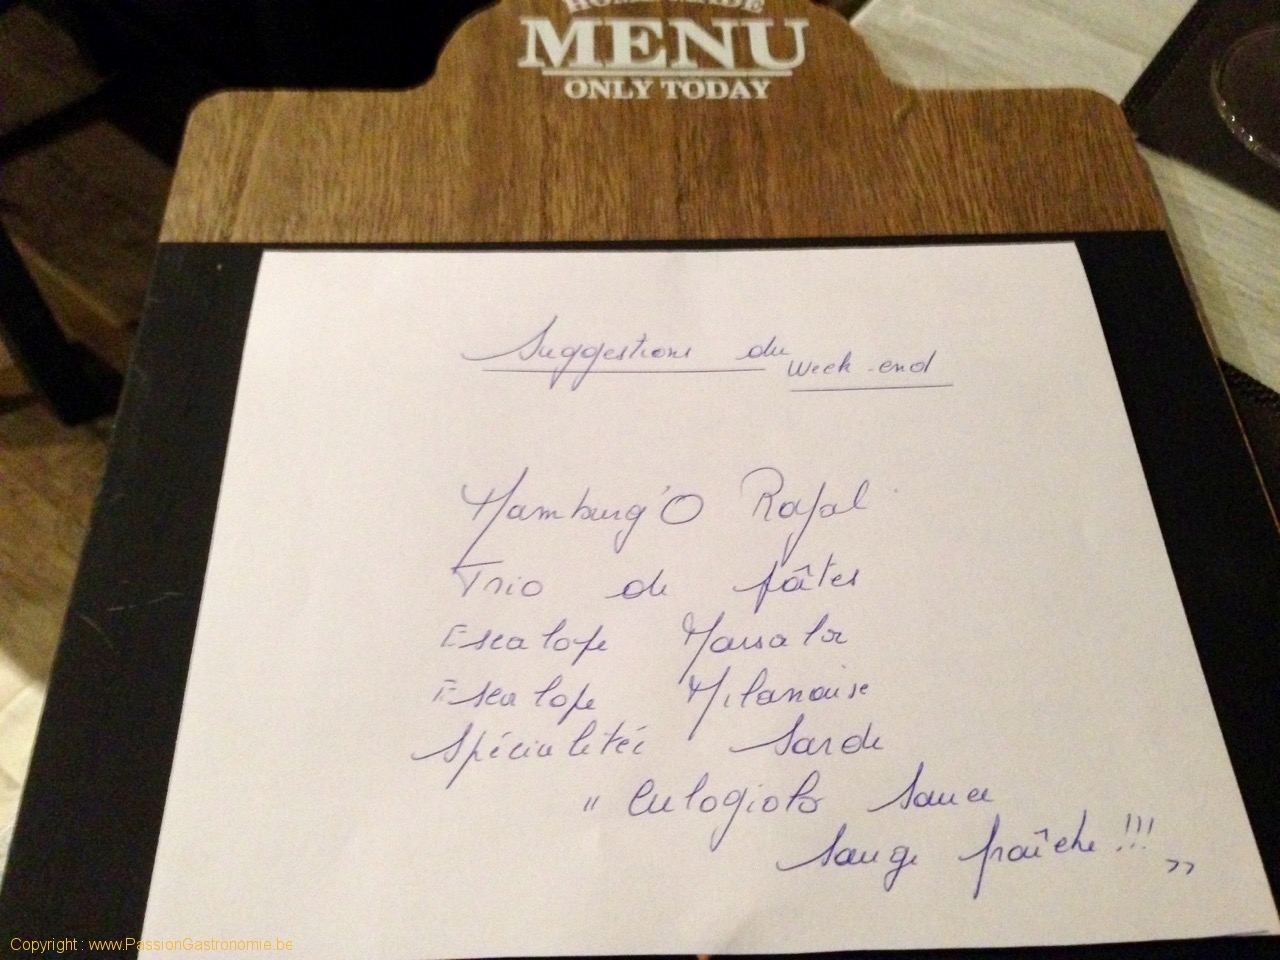 HOME MADE
MENU
ONLY TODAY
Suggestions du week-end
Hamburg'O Royal
Trio de pâtes
Escalope Marsala
Escalope Milanaise
Spécialité Sarde
" Culogiols sauce
sauge fraîche !!! "
Copyright : www.PassionGastronomie.be